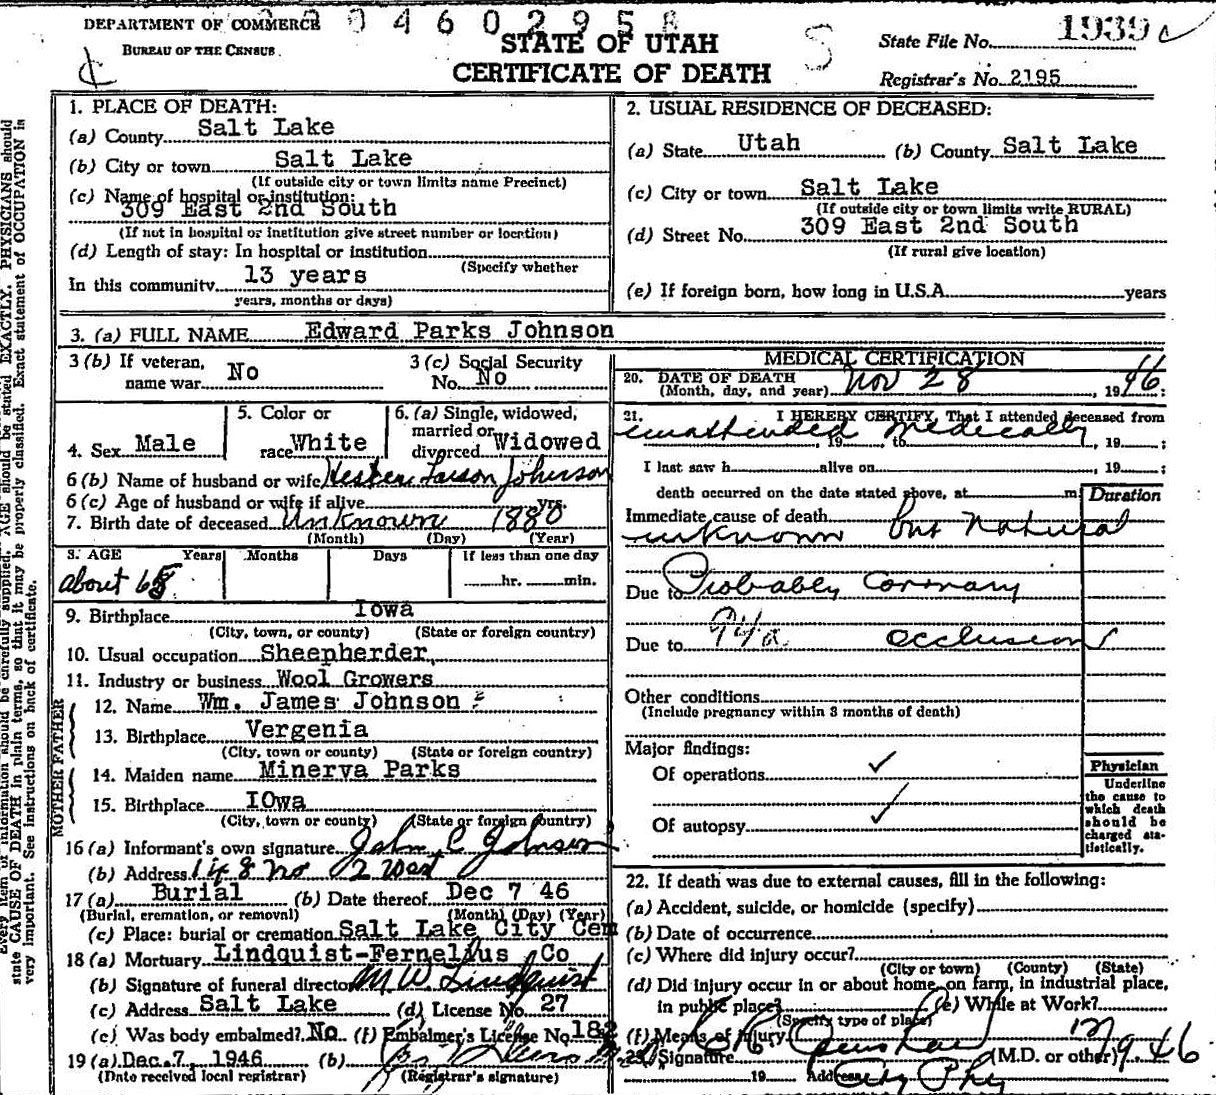 DEPARTMENT OF COMMERCE
BUREAU OF THE CENSUS
0 4 6 0 2 9 5 8
STATE OF UTAH
CERTIFICATE OF DEATH
S
State File No. 1939
Registrar's No. 2195
1. PLACE OF DEATH:
(a) County Salt Lake
(b) City or town Salt Lake
(If outside city or town limits name Precinct)
(c) Name of hospital or institution:
309 East 2nd South
(If not in hospital or institution give street number or location)
(d) Length of stay: In hospital or institution
(Specify whether
In this community 13 years
years, months or days)
2. USUAL RESIDENCE OF DECEASED:
(a) State Utah (b) County Salt Lake
(c) City or town Salt Lake
(If outside city or town limits write RURAL)
(d) Street No. 309 East 2nd South
(If rural give location)
(e) If foreign born, how long in U.S.A. years
3. (a) FULL NAME Edward Parks Johnson
3 (b) If veteran, name war No
3 (c) Social Security No. No
4. Sex Male
5. Color or race White
6. (a) Single, widowed, married or divorced Widowed
6 (b) Name of husband or wife Johnson
6 (c) Age of husband or wife if alive yrs.
7. Birth date of deceased Unknown 1880
(Month) (Day) (Year)
8. AGE Years Months Days If less than one day
about hr. min.
9. Birthplace Iowa
(City, town, or county) (State or foreign country)
10. Usual occupation Sheepherder,
11. Industry or business Wool Growers
FATHER
12. Name Wm. James Johnson
13. Birthplace Vergenia
(City, town or county) (State or foreign country)
MOTHER
14. Maiden name Minerva Parks
15. Birthplace IOwa
(City, town or county) (State or foreign country)
16 (a) Informant's own signature John C Johnson
(b) Address No 2 West
17 (a) Burial (b) Date thereof Dec 7 46
(Burial, cremation, or removal) (Month) (Day) (Year)
(c) Place: burial or cremation Salt Lake City Cem
18 (a) Mortuary Lindquist-Fernelius Co
(b) Signature of funeral director M W Lindquist
(c) Address Salt Lake (d) License No. 27
(e) Was body embalmed? No (f) Embalmer's License No. 182
19 (a) Dec. 7, 1946 (b)
(Date received local registrar) (Registrar's signature)
MEDICAL CERTIFICATION
20. DATE OF DEATH
(Month, day, and year) Nov 28, 1946:
21. I HEREBY CERTIFY, That I attended deceased from
unattended, 19 to Medically, 19 ;
I last saw h alive on , 19 ;
death occurred on the date stated above, at m
Duration
Immediate cause of death
unknown but natural
Due to Probably Coronary
Due to 94a occlusion
Other conditions
(Include pregnancy within 3 months of death)
Major findings:
Of operations
Of autopsy
Physician
Underline
the cause to
which death
should be
charged sta-
tistically.
22. If death was due to external causes, fill in the following:
(a) Accident, suicide, or homicide (specify)
(b) Date of occurrence
(c) Where did injury occur?
(City or town) (County) (State)
(d) Did injury occur in or about home, on farm, in industrial place,
in public place? (e) While at Work?
(Specify type of place)
(f) Means of injury
23. Signature (M.D. or other)
19 Address City Phy
Every item of information should be carefully supplied. AGE should be stated EXACTLY. PHYSICIANS should
state CAUSE OF DEATH in plain terms, so that it may be properly classified. Exact statement of OCCUPATION is
very important. See instructions on back of certificate.